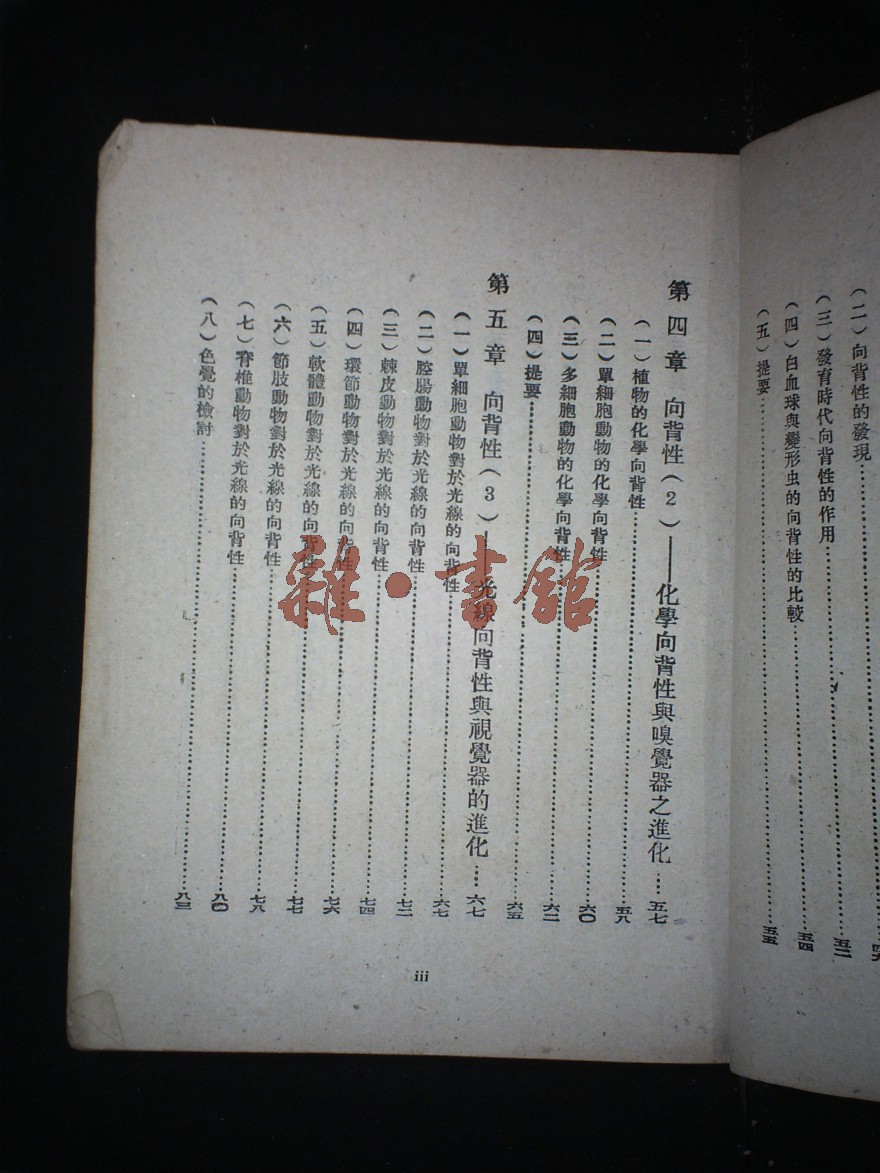 (二)向背性的發現
(三)發育時代向背性的作用…………五二
(四)白血球與變形虫的向背性的比較…………五四
(五)提要…………五五
第四章 向背性(2)——化學向背性與嗅覺器之進化……五七
(一)植物的化學向背性…………五八
(二)單細胞動物的化學向背性…………六〇
(三)多細胞動物的化學向背性…………六二
(四)提要…………六五
第五章 向背性(3)——光線向背性與視覺器的進化……六七
(一)單細胞動物對於光線的向背性…………六七
(二)腔腸動物對於光線的向背性…………七二
(三)棘皮動物對於光線的向背性…………七四
(四)環節動物對於光線的向背性…………七六
(五)軟體動物對於光線的向背性…………七七
(六)節肢動物對於光線的向背性…………七八
(七)脊椎動物對於光線的向背性…………八〇
(八)色覺的檢討…………八三
iii
雜·書館